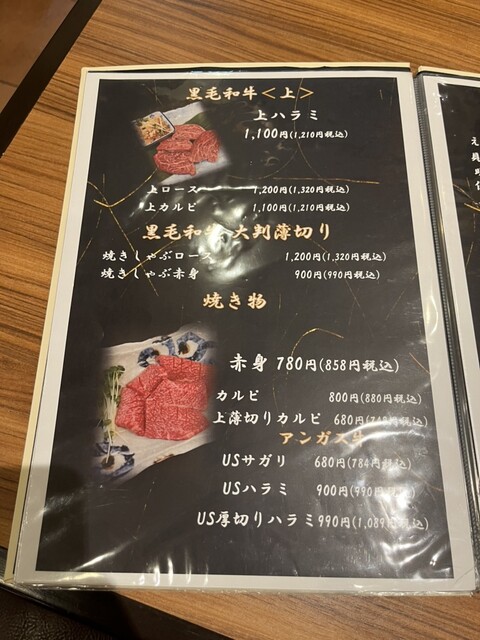 黒毛和牛<上>
上ハラミ
1,100円(1,210円税込)
上ロース 1,200円(1,320円税込)
上カルビ 1,100円(1,210円税込)
黒毛和牛 大判薄切り
焼きしゃぶロース 1,200円(1,320円税込)
焼きしゃぶ赤身 900円(990円税込)
焼き物
赤身 780円(858円税込)
カルビ 800円(880円税込)
上薄切りカルビ 680円(748円税込)
アンガス牛
USサガリ 680円(784円税込)
USハラミ 900円(990円税込)
US厚切りハラミ 990円(1,089円税込)